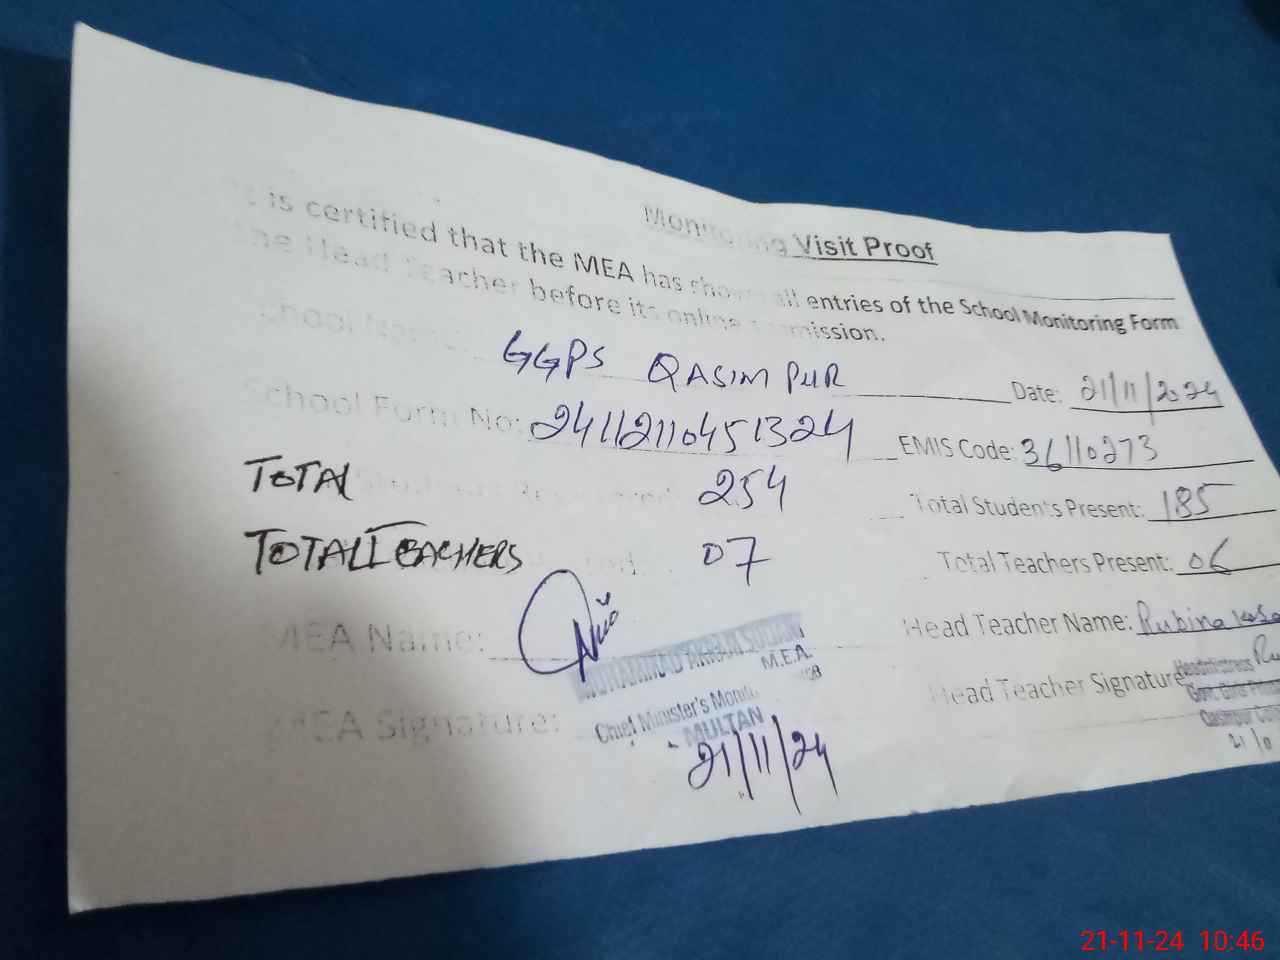 Monitoring Visit Proof
It is certified that the MEA has shown all entries of the School Monitoring Form
the Head Teacher before its online submission.
School Name: GGPS QASIMPUR Date: 21/11/2024
School Form No: 24112110451324 EMIS Code: 36110273
TOTAL 254 Total Students Present: 185
TOTAL TEACHERS 07 Total Teachers Present: 06
MEA Name: Head Teacher Name: Rubina
MUHAMMAD AKRAM
M.E.A.
MEA Signature: Head Teacher Signature
Chief Minister's Monit
MULTAN
21/11/24
Headmistress
Govt. Girls
Qasimpur
21-11-24 10:46